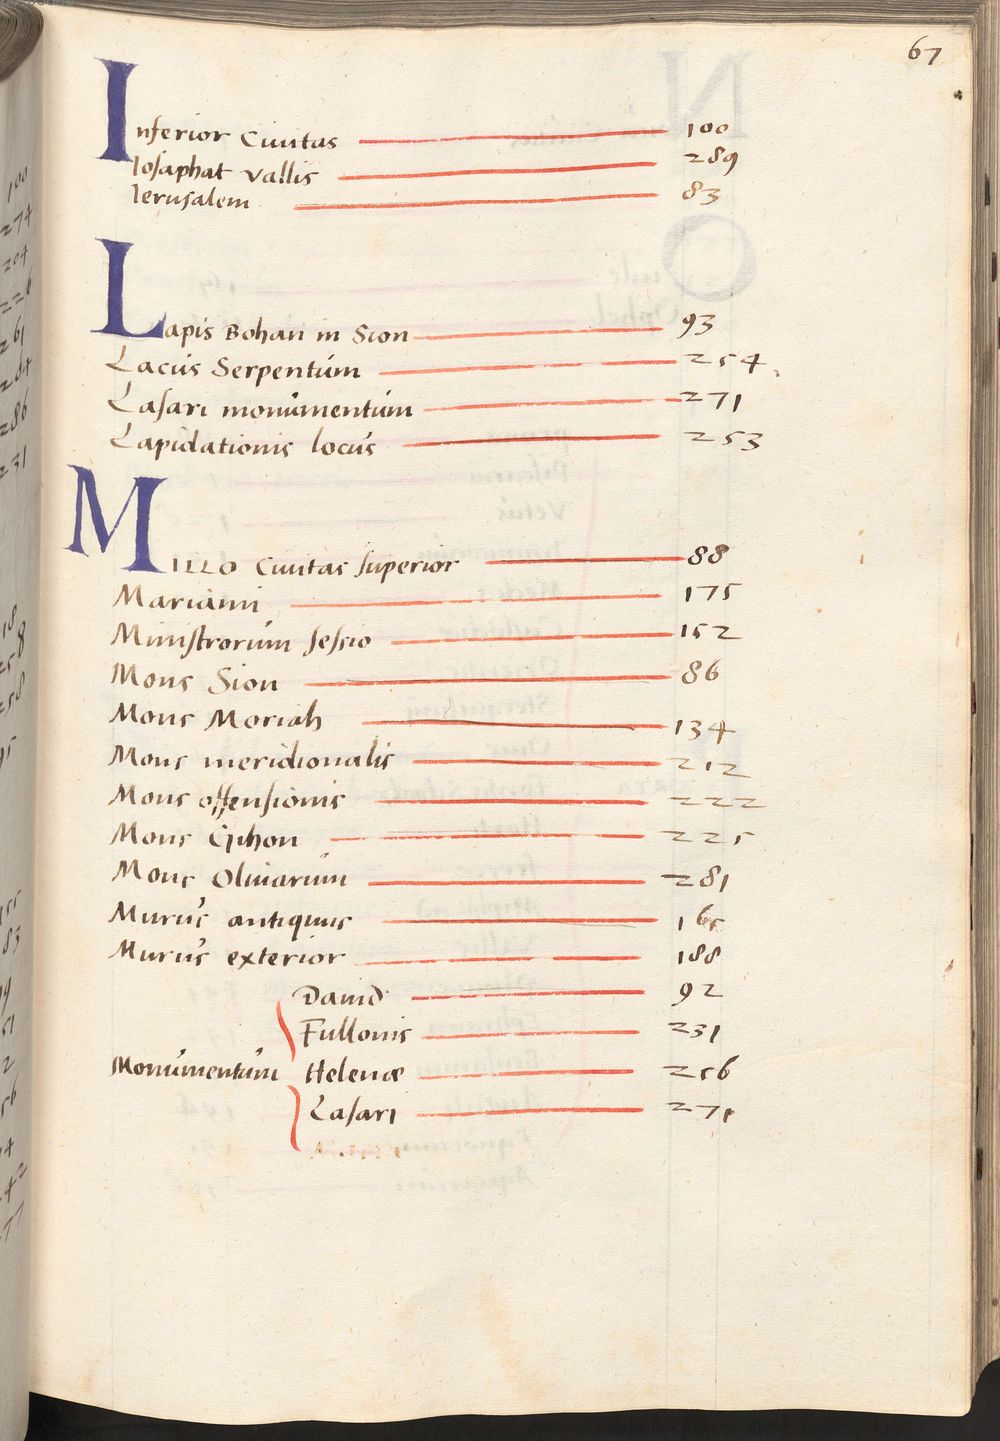 67
Inferior Ciuitas 100
Iosaphat vallis 289
Ierusalem 83
Lapis Bohan in Sion 93
Lacus Serpentum 254
Lasari monumentum 271
Lapidationis locus 253
MILLO Ciuitas superior 88
Mariami 175
Ministrorum sessio 152
Mons Sion 86
Mons Moriah 134
Mons meridionalis 212
Mons offensionis 222
Mons Gihon 225
Mons Oliuarum 281
Murus antiquus 165
Murus exterior 188
Dauid 92
Fullonis 231
Monumentum Helenæ 256
Lasari 271